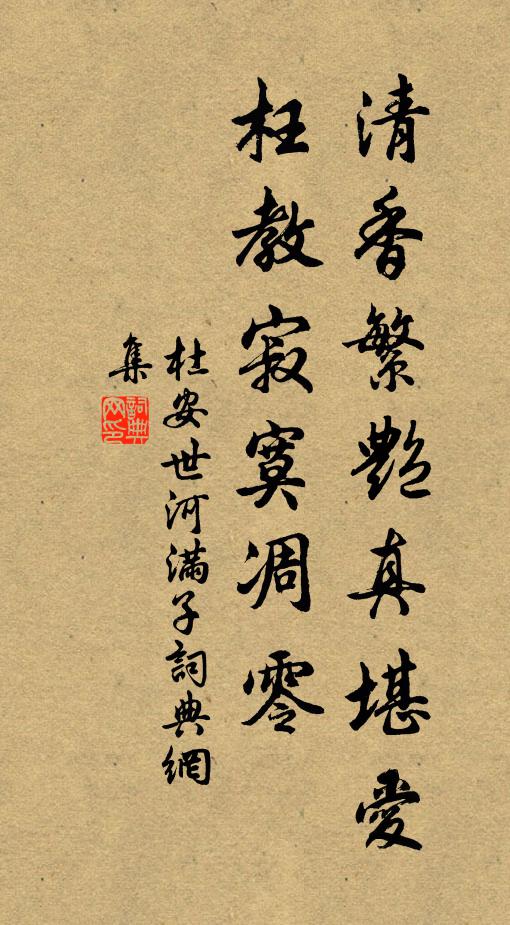 清香繁艷真堪愛
枉教寂寞凋零
杜安世河滿子詞典網
集
詞典網印